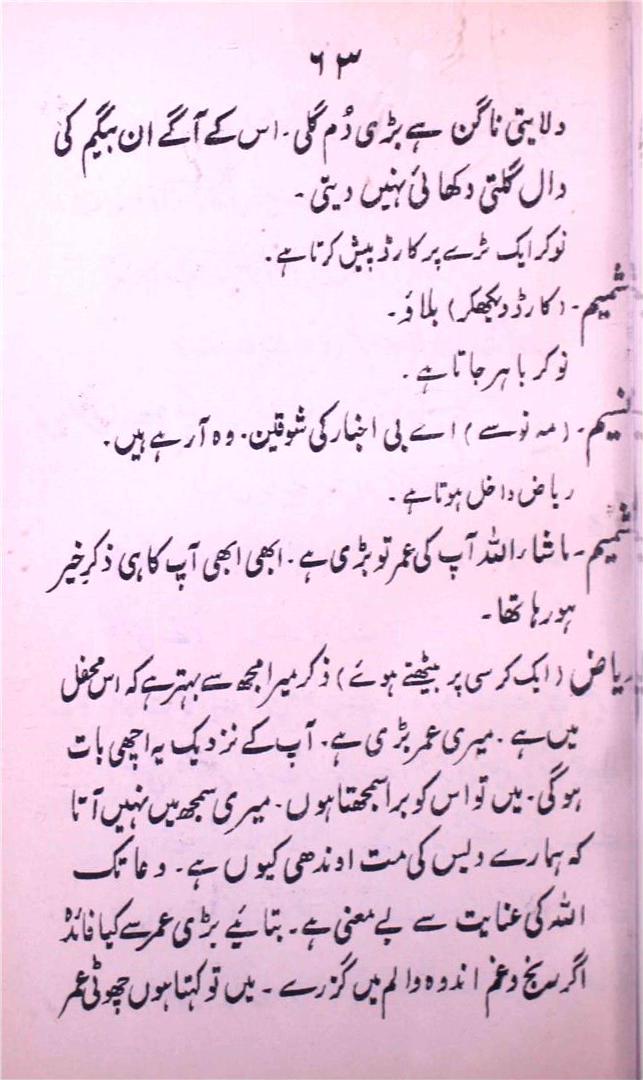 ۶۳
ولایتی ناگن ہے بڑی دُم گلی۔ اس کے آگے ان بیگم کی
دال گلتی دکھائی نہیں دیتی۔
نوکر ایک ٹرے پر کارڈ پیش کرتا ہے۔
شمیم۔ (کارڈ دیکھکر) بلاؤ۔
نوکر باہر جاتا ہے۔
نسیم۔ (مہ نو سے) اے بی اخبار کی شوقین۔ وہ آرہے ہیں۔
ریاض داخل ہوتا ہے۔
شمیم۔ ماشاء اللہ آپ کی عمر تو بڑی ہے۔ ابھی ابھی آپ کا ہی ذکرِ خیر
ہورہا تھا۔
ریاض (ایک کرسی پر بیٹھتے ہوئے) ذکر میرا مجھ سے بہتر ہے کہ اس محفل
میں ہے۔ میری عمر بڑی ہے۔ آپ کے نزدیک یہ اچھی بات
ہوگی۔ میں تو اس کو برا سمجھتا ہوں۔ میری سمجھ میں نہیں آتا
کہ ہمارے دیس کی مت اوندھی کیوں ہے۔ دعا تک
اللہ کی عنایت سے بے معنی ہے۔ بتائیے بڑی عمر سے کیا فائدہ
اگر رنج و غم اندوہ و الم میں گزرے۔ میں تو کہتا ہوں چھوٹی عمر